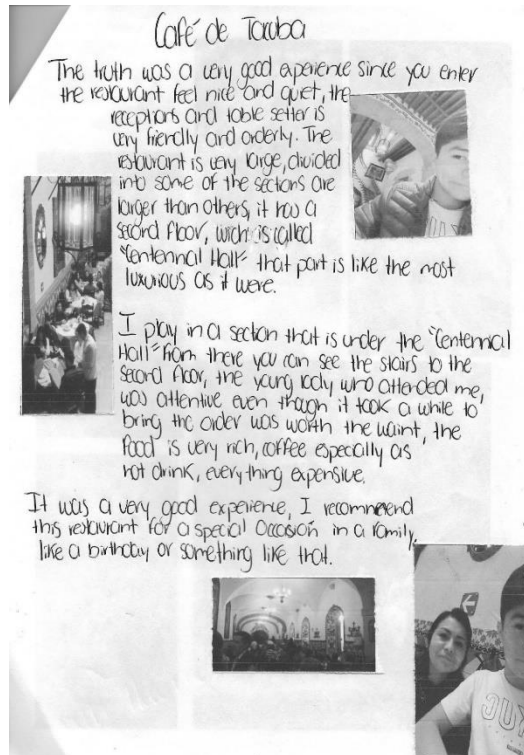 Café de Tacuba
The truth was a very good experience since you enter
the restaurant feel nice and quiet, the
receptions and table setter is
very friendly and orderly. The
restaurant is very large, divided
into some of the sections are
larger than others, it has a
second floor, wich is called
"Centennal Hall" that part is like the most
luxurious as it were.
I play in a section that is under the "Centennal
Hall" from there you can see the stairs to the
second floor, the young lady who attended me,
was attentive even though it took a while to
bring the order was worth the waint, the
food is very rich, coffee especially as
hot drink, everything expensive.
It was a very good experience, I recommend
this restaurant for a special Occasion in a family,
like a birthday or something like that.